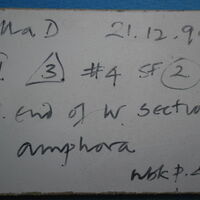 MaD 21.12.9
3 #4 SF 2
. end of W. section
amphora
Nbk p.